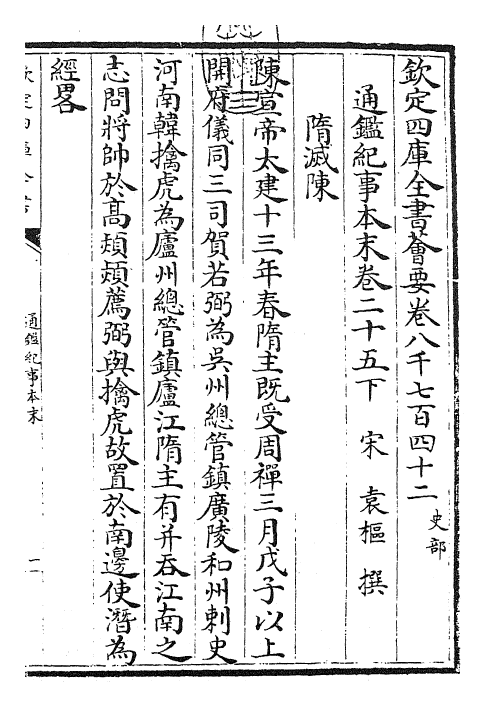 欽定四庫全書薈要卷八千七百四十二 史部
通鑑紀事本末卷二十五下 宋 袁樞 撰
隋滅陳
陳宣帝太建十三年春隋主既受周禪三月戊子以上
開府儀同三司賀若弼為吳州總管鎮廣陵和州刺史
河南韓擒虎為廬州總管鎮廬江隋主有并吞江南之
志問將帥於髙熲熲薦弼與擒虎故置於南邊使潛為
經畧
通鑑紀事本末